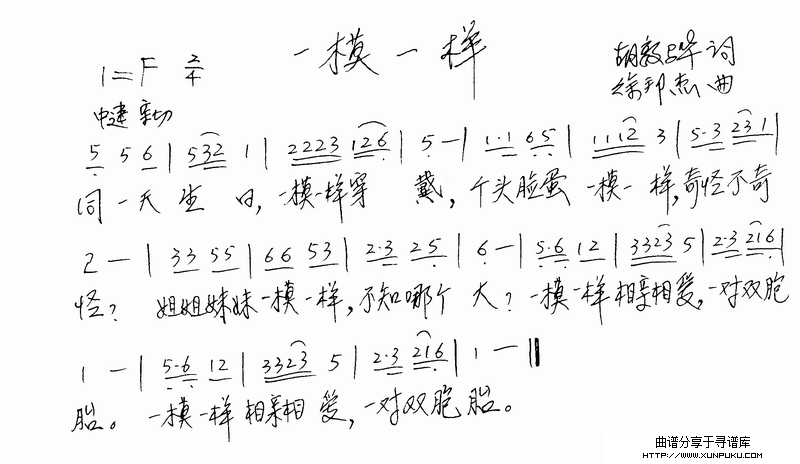 一模一样
1=F 2/4
胡敦骅 词
徐邦杰 曲
中速 亲切
5 5 6 | 532 1 | 2223 126 | 5 — | 1·1 65 | 1112 3 | 5·3 231 |
同一天生日,一模一样穿戴,个头脸蛋一模一样,奇怪不奇
2 — | 33 55 | 66 53 | 2·3 25 | 6 — | 5·6 12 | 3323 5 | 2·3 216 |
怪? 姐姐妹妹一模一样,不知哪个大?一模一样相亲相爱,一对双胞
1 — | 5·6 12 | 3323 5 | 2·3 216 | 1 — ‖
胎。一模一样相亲相爱,一对双胞胎。
曲谱分享于寻谱库
HTTP://WWW.XUNPUKU.COM